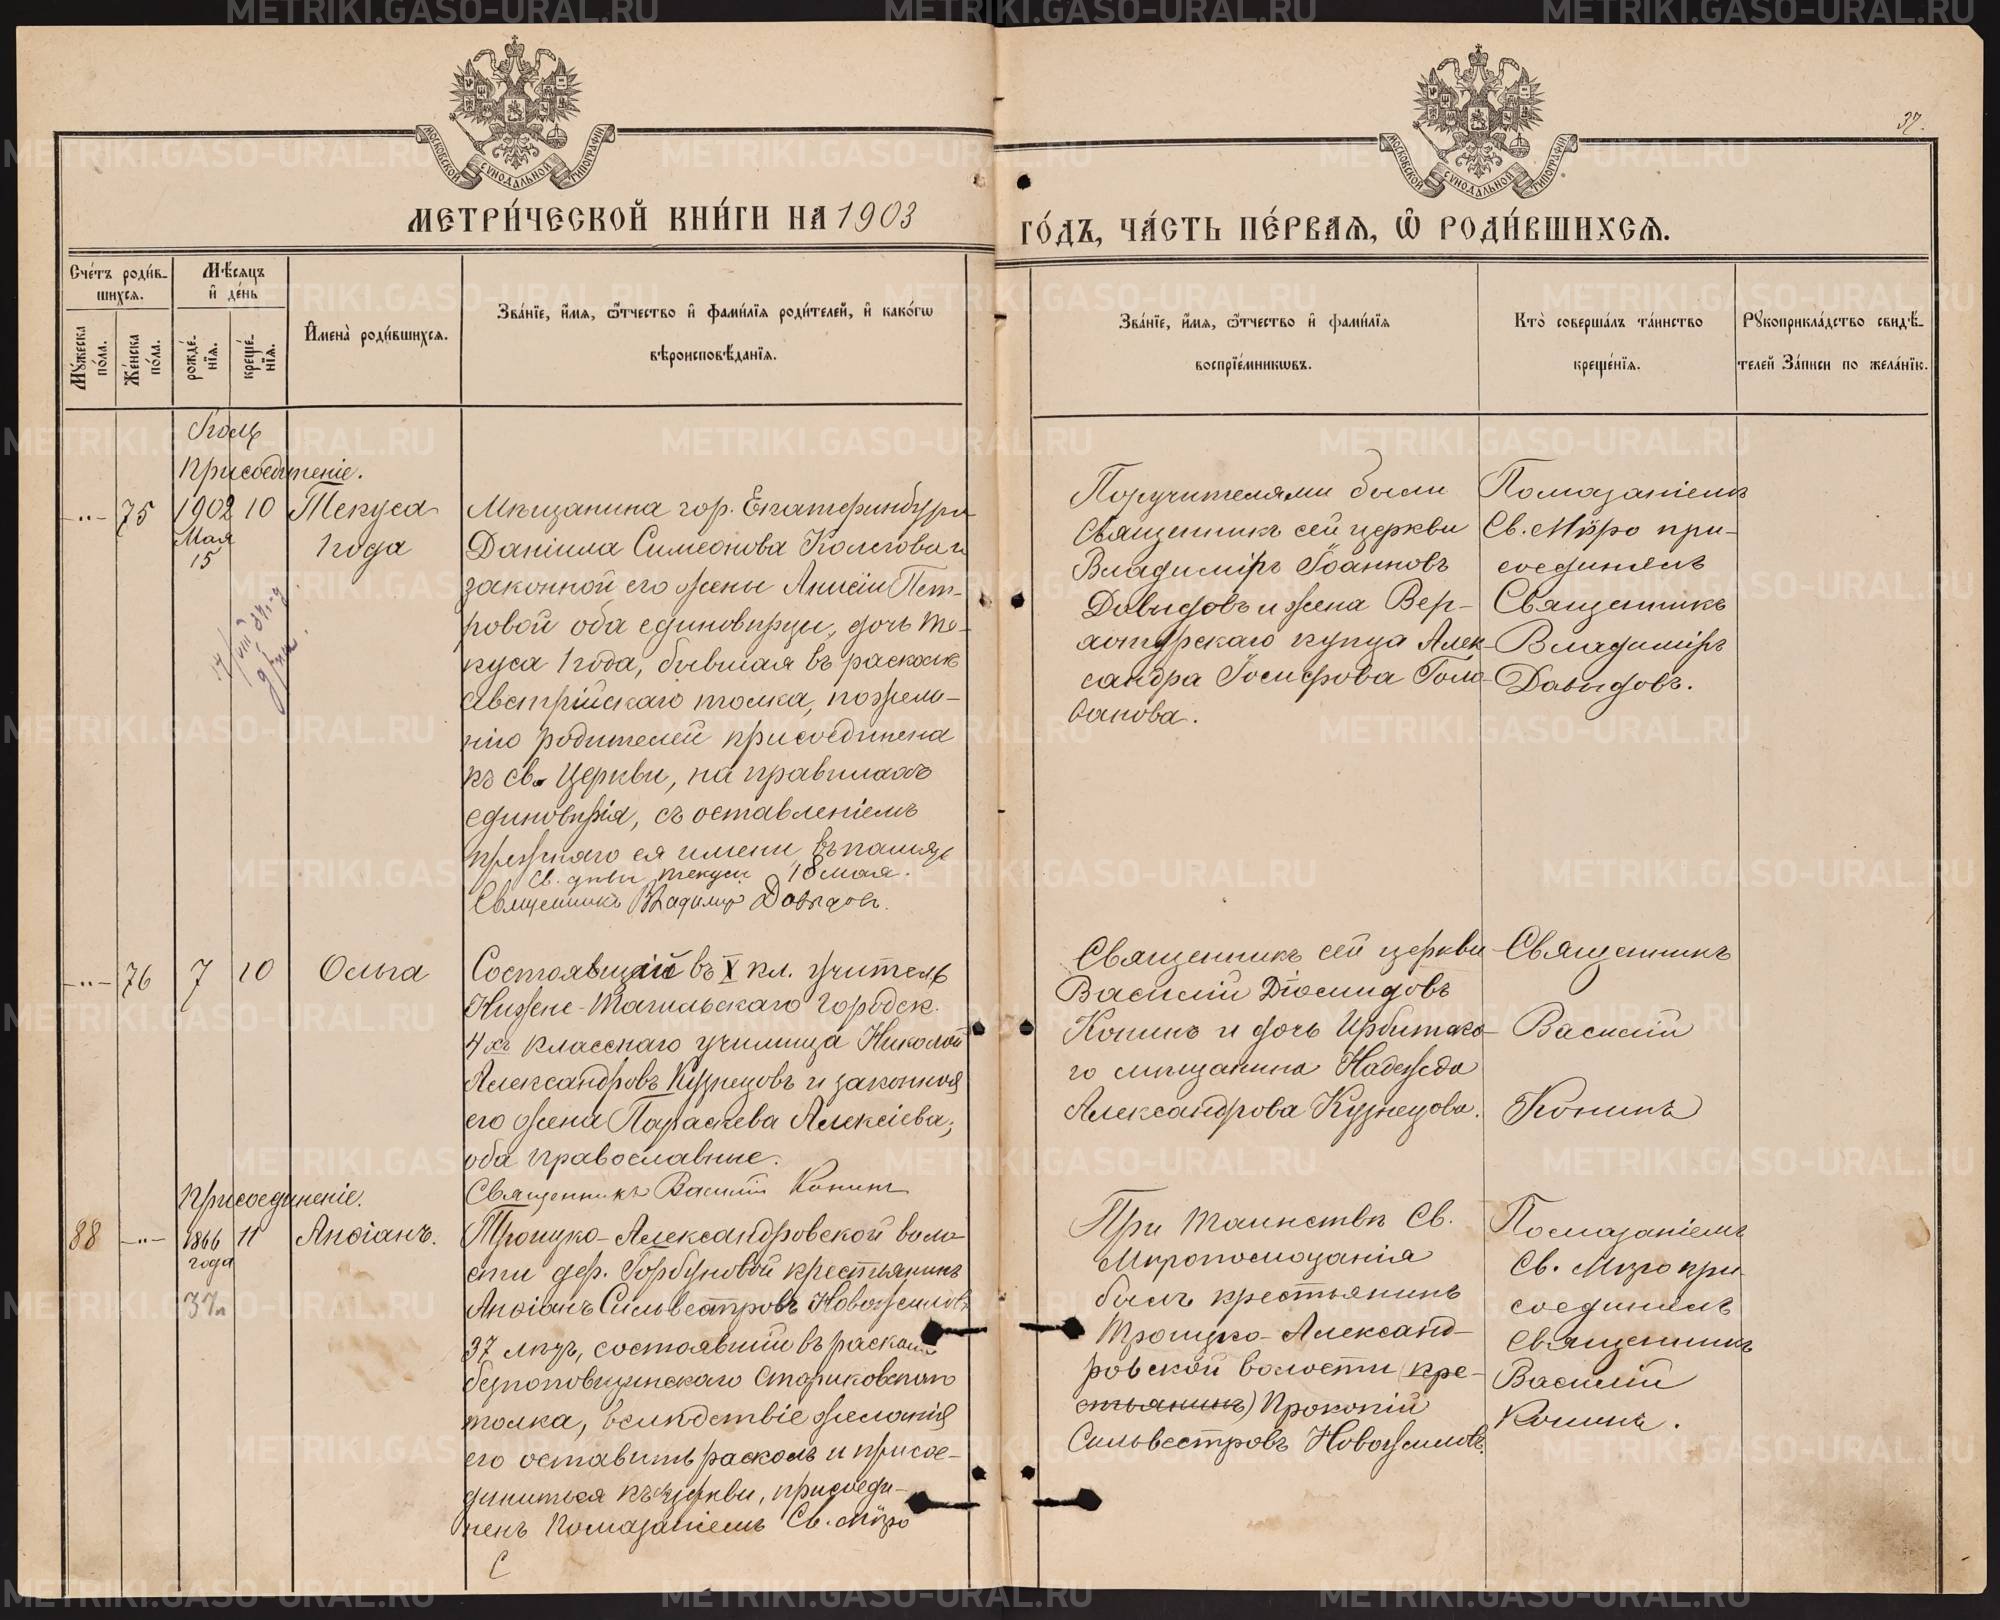 37.
МЕТРИ́ЧЕСКОЙ КНИ́ГИ НА 1903
ГО́ДЪ, ЧА́СТЬ ПЕ́РВАѦ, Ѿ РОДИ́ВШИХСѦ.
Сче́тъ роди́в-
шихсѧ.
Мѣ́сѧцъ
и҆ де́нь
Мꙋ́жеска по́ла.
Же́нска по́ла.
рожде́нїѧ.
креще́нїѧ.
И҆мена̀ роди́вшихсѧ.
Зва́нїе, и҆́мѧ, ѻ҆́тчество и҆ фами́лїѧ роди́телей, и҆ како́гѡ
вѣроисповѣ́данїѧ.
Зва́нїе, и҆́мѧ, ѻ҆́тчество и҆ фами́лїѧ
воспрїе́мникѡвъ.
Кто̀ соверша́лъ та́инство
креще́нїѧ.
Рꙋкоприкла́дство свидѣ́-
телей за́писи по жела́нїю.
Присоединеніе.
-"- 75
1902 10
Мая
15
Текуса
1 года
Мѣщанина гор. Екатеринбурга
Даніила Симеонова Колегова и
законной его жены Анисіи Пет-
ровой оба единовѣрцы, дочь Те-
куса 1 года, бывшая въ расколѣ
Австрійскаго толка, по жела-
нію родителей присоединена
къ св. Церкви, на правилахъ
единовѣрія, съ оставленіемъ
прежняго ея имени, въ память
св. дѣвы Текусы 18 мая.
Священникъ Владимір Давыдовъ.
Поручителями были
Священникъ сей церкви
Владиміръ Іоанновъ
Давыдовъ и жена Вер-
хотурскаго купца Алек-
сандра Іосифова Голо-
ванова.
Помазаніемъ
Св. Мѵро при-
соединялъ
Священникъ
Владиміръ
Давыдовъ.
-"- 76
7 10
Ольга
Состоявщій въ X кл. учитель
Нижне-Тагильскаго Городск.
4хъ класснаго училища Николай
Александровъ Кузнецовъ и законная
его жена Параскева Алексіева;
оба православные.
Священникъ Василій Конинъ
Священникъ сей церкви
Василій Діомидовъ
Конинъ и дочь Ирбитска-
го мѣщанина Надежда
Александрова Кузнецова.
Священникъ
Василій
Конинъ
Присоединеніе.
88 -"-
1866 11
года
37л
Апфіанъ.
Троицко-Александровской воло-
сти дер. Горбуновой крестьянинъ
Апфіанъ Сильвестровъ Новожиловъ
37 лѣтъ, состоявшій въ расколѣ
безпоповщинскаго Стариковскаго
толка, вслѣдствіе желанія
его оставить расколъ и присое-
диниться къ церкви, присоеди-
ненъ Помазаніемъ Св. Мѵро
При Таинствѣ Св.
Мѵропомазанія
былъ крестьянинъ
Троицко-Александ-
ровской волости (кре-
стьянинъ) Прокопій
Сильвестровъ Новожиловъ.
Помазаніемъ
Св. Мѵро при-
соединялъ
Священникъ
Василій
Конинъ.
METRIKI.GASO-URAL.RU